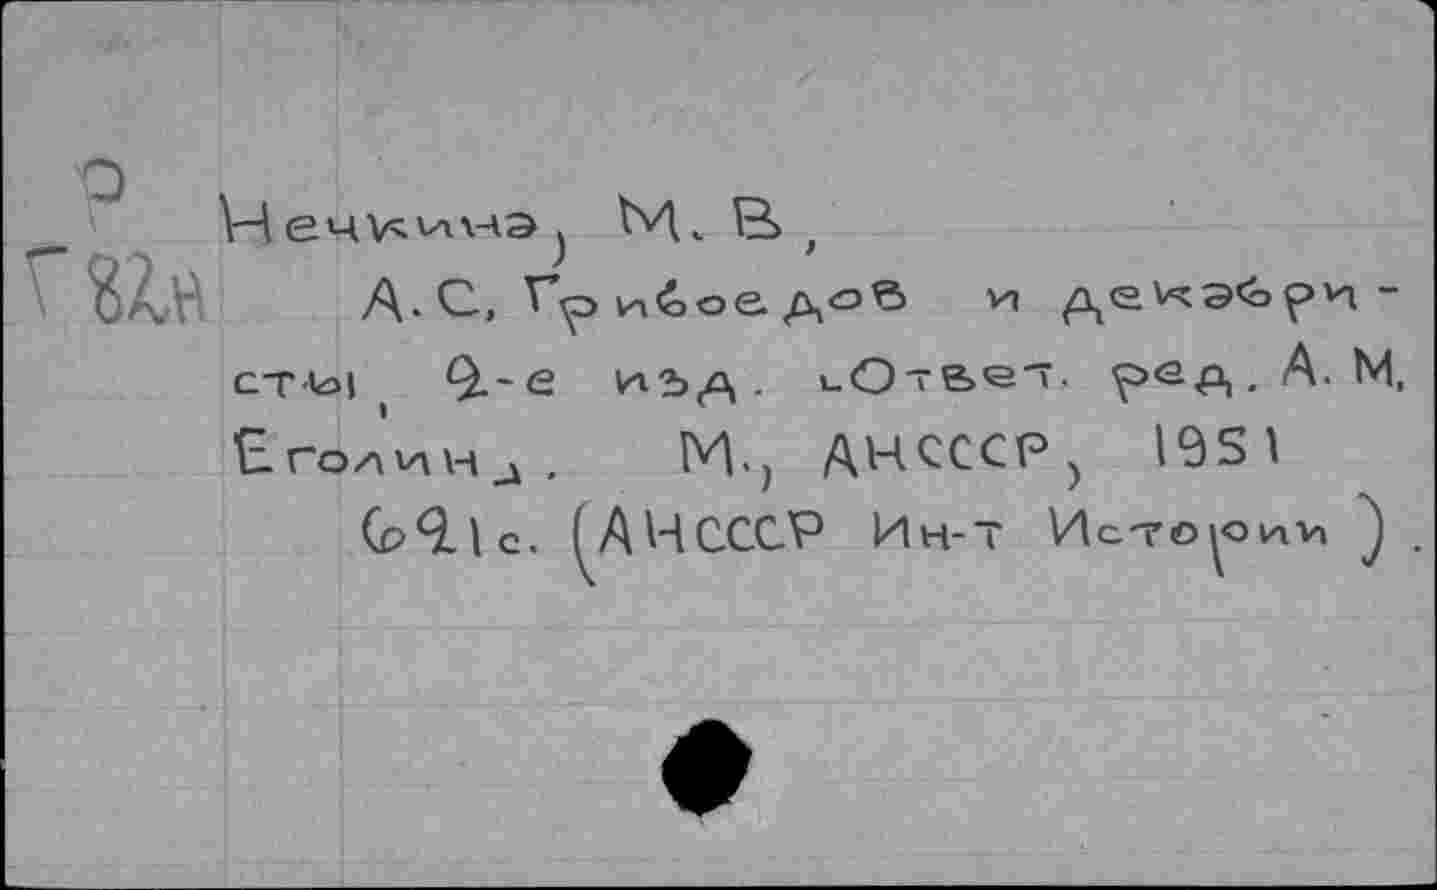 Р
Г82н
Нечкина, М. В,
А. С, Грибоедов и декабри-
сты, 2-е изд. Ответ. ред. А. М,
Еголина. М., АНСССР, 1951
621с. (АНСССР Ин-т Истории).